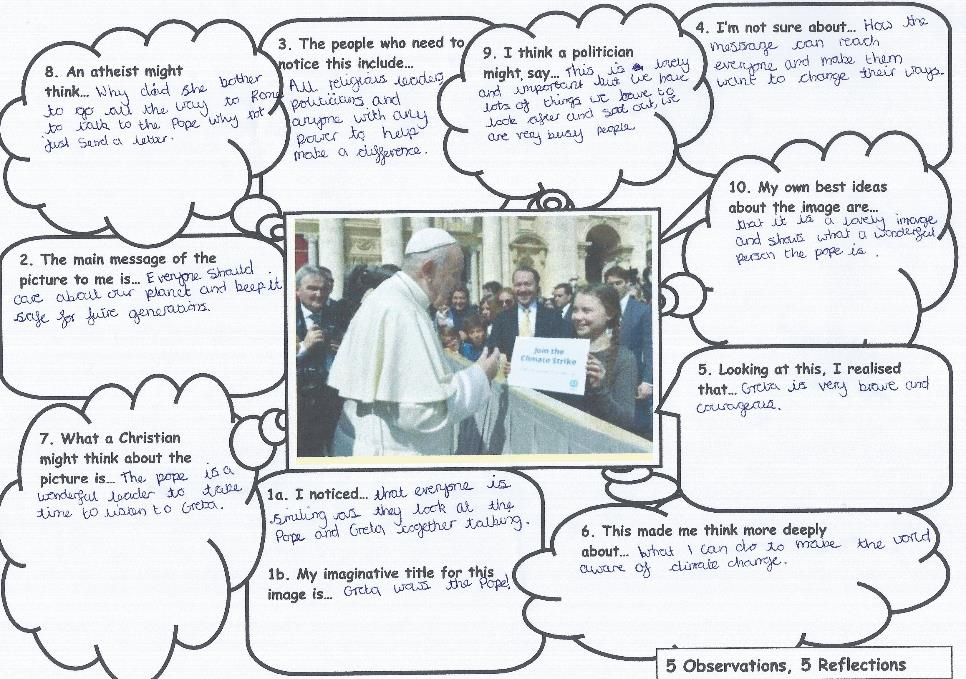 8. An atheist might
think... Why did she bother
to go all the way to Rome
to talk to the Pope why not
just send a letter.
3. The people who need to
notice this include...
All religious leaders
politicians and
anyone with any
power to help
make a difference.
9. I think a politician
might say... This is a lovely
and important but we have
lots of things we have to
look after and sort out, we
are very busy people
4. I'm not sure about... How the
message can reach
everyone and make them
want to change their ways.
10. My own best ideas
about the image are...
that it is a lovely image
and shows what a wonderful
person the pope is.
2. The main message of the
picture to me is... Everyone should
care about our planet and keep it
safe for future generations.
Join the
Climate Strike
5. Looking at this, I realised
that... Greta is very brave and
courageous.
7. What a Christian
might think about the
picture is... The pope is a
wonderful leader to take
time to listen to Greta.
1a. I noticed... that everyone is
smiling as they look at the
Pope and Greta together talking.
1b. My imaginative title for this
image is... Greta wows the Pope!
6. This made me think more deeply
about... What I can do to make the world
aware of climate change.
5 Observations, 5 Reflections